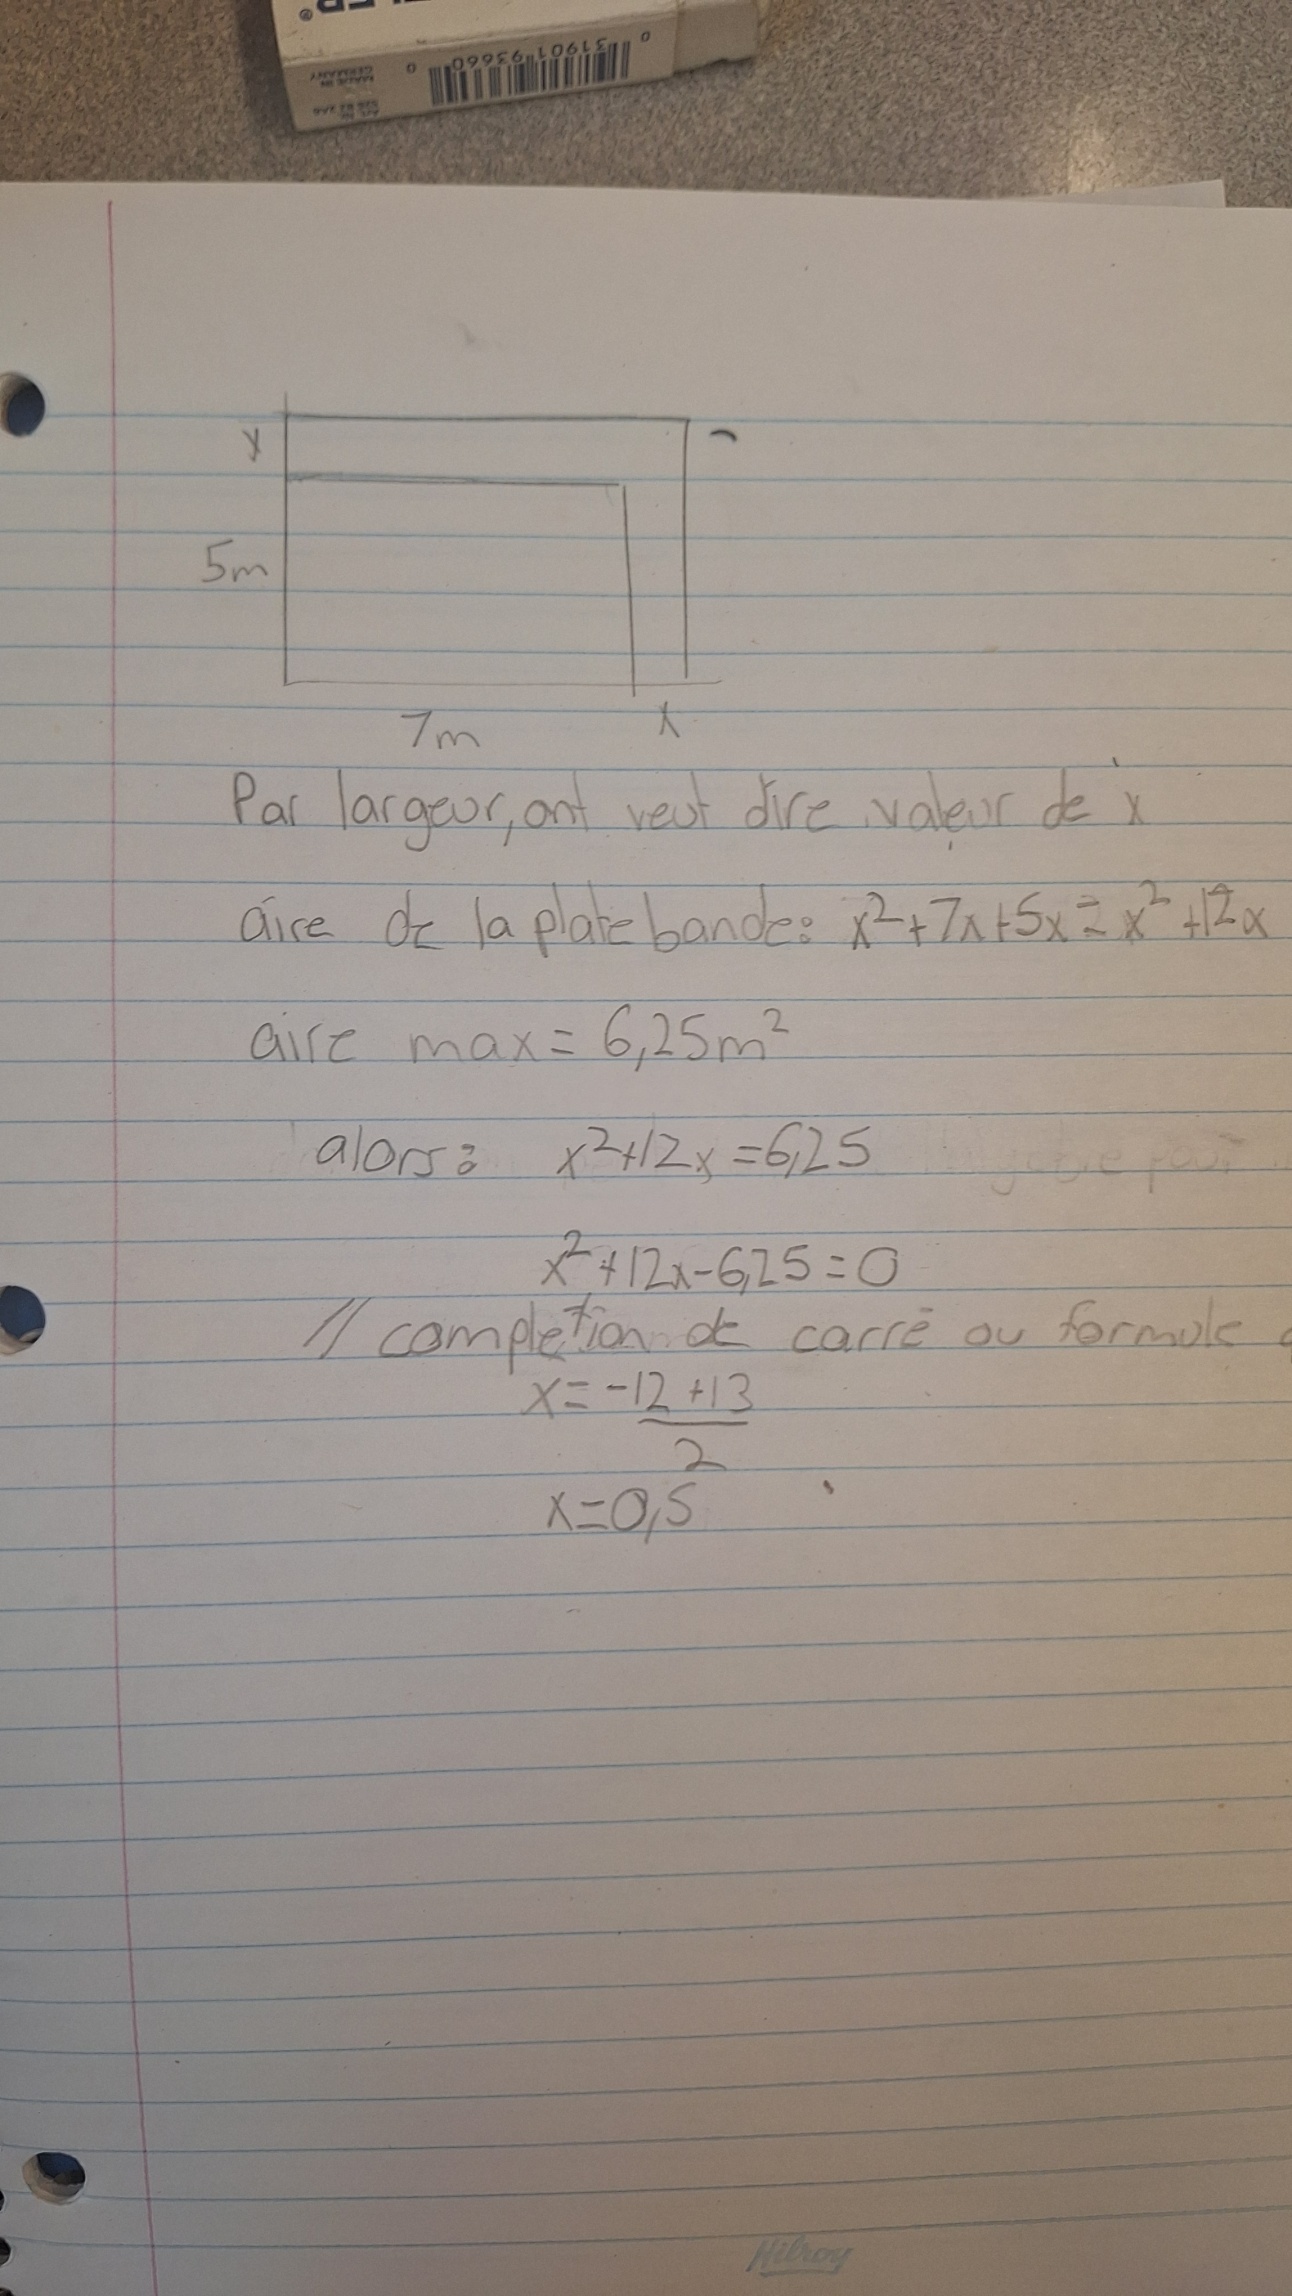 0 31901 93660 0
MADE IN
GERMANY
x
5m
7m
x
Par largeur, ont veut dire valeur de x
aire de la plate bande: x²+7x+5x = x²+12x
aire max = 6,25m²
alors: x²+12x = 6,25
x²+12x-6,25=0
// completion de carré ou formule
x = -12 +13
2
x=0,5
Hilroy